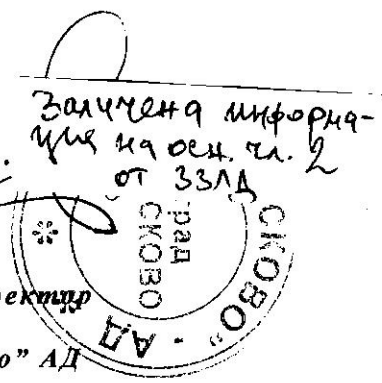 Заличена информа-
ция на осн. чл. 2
от ЗЗЛД
град
СКОВО
СКОВО" АД
ектор
о" АД